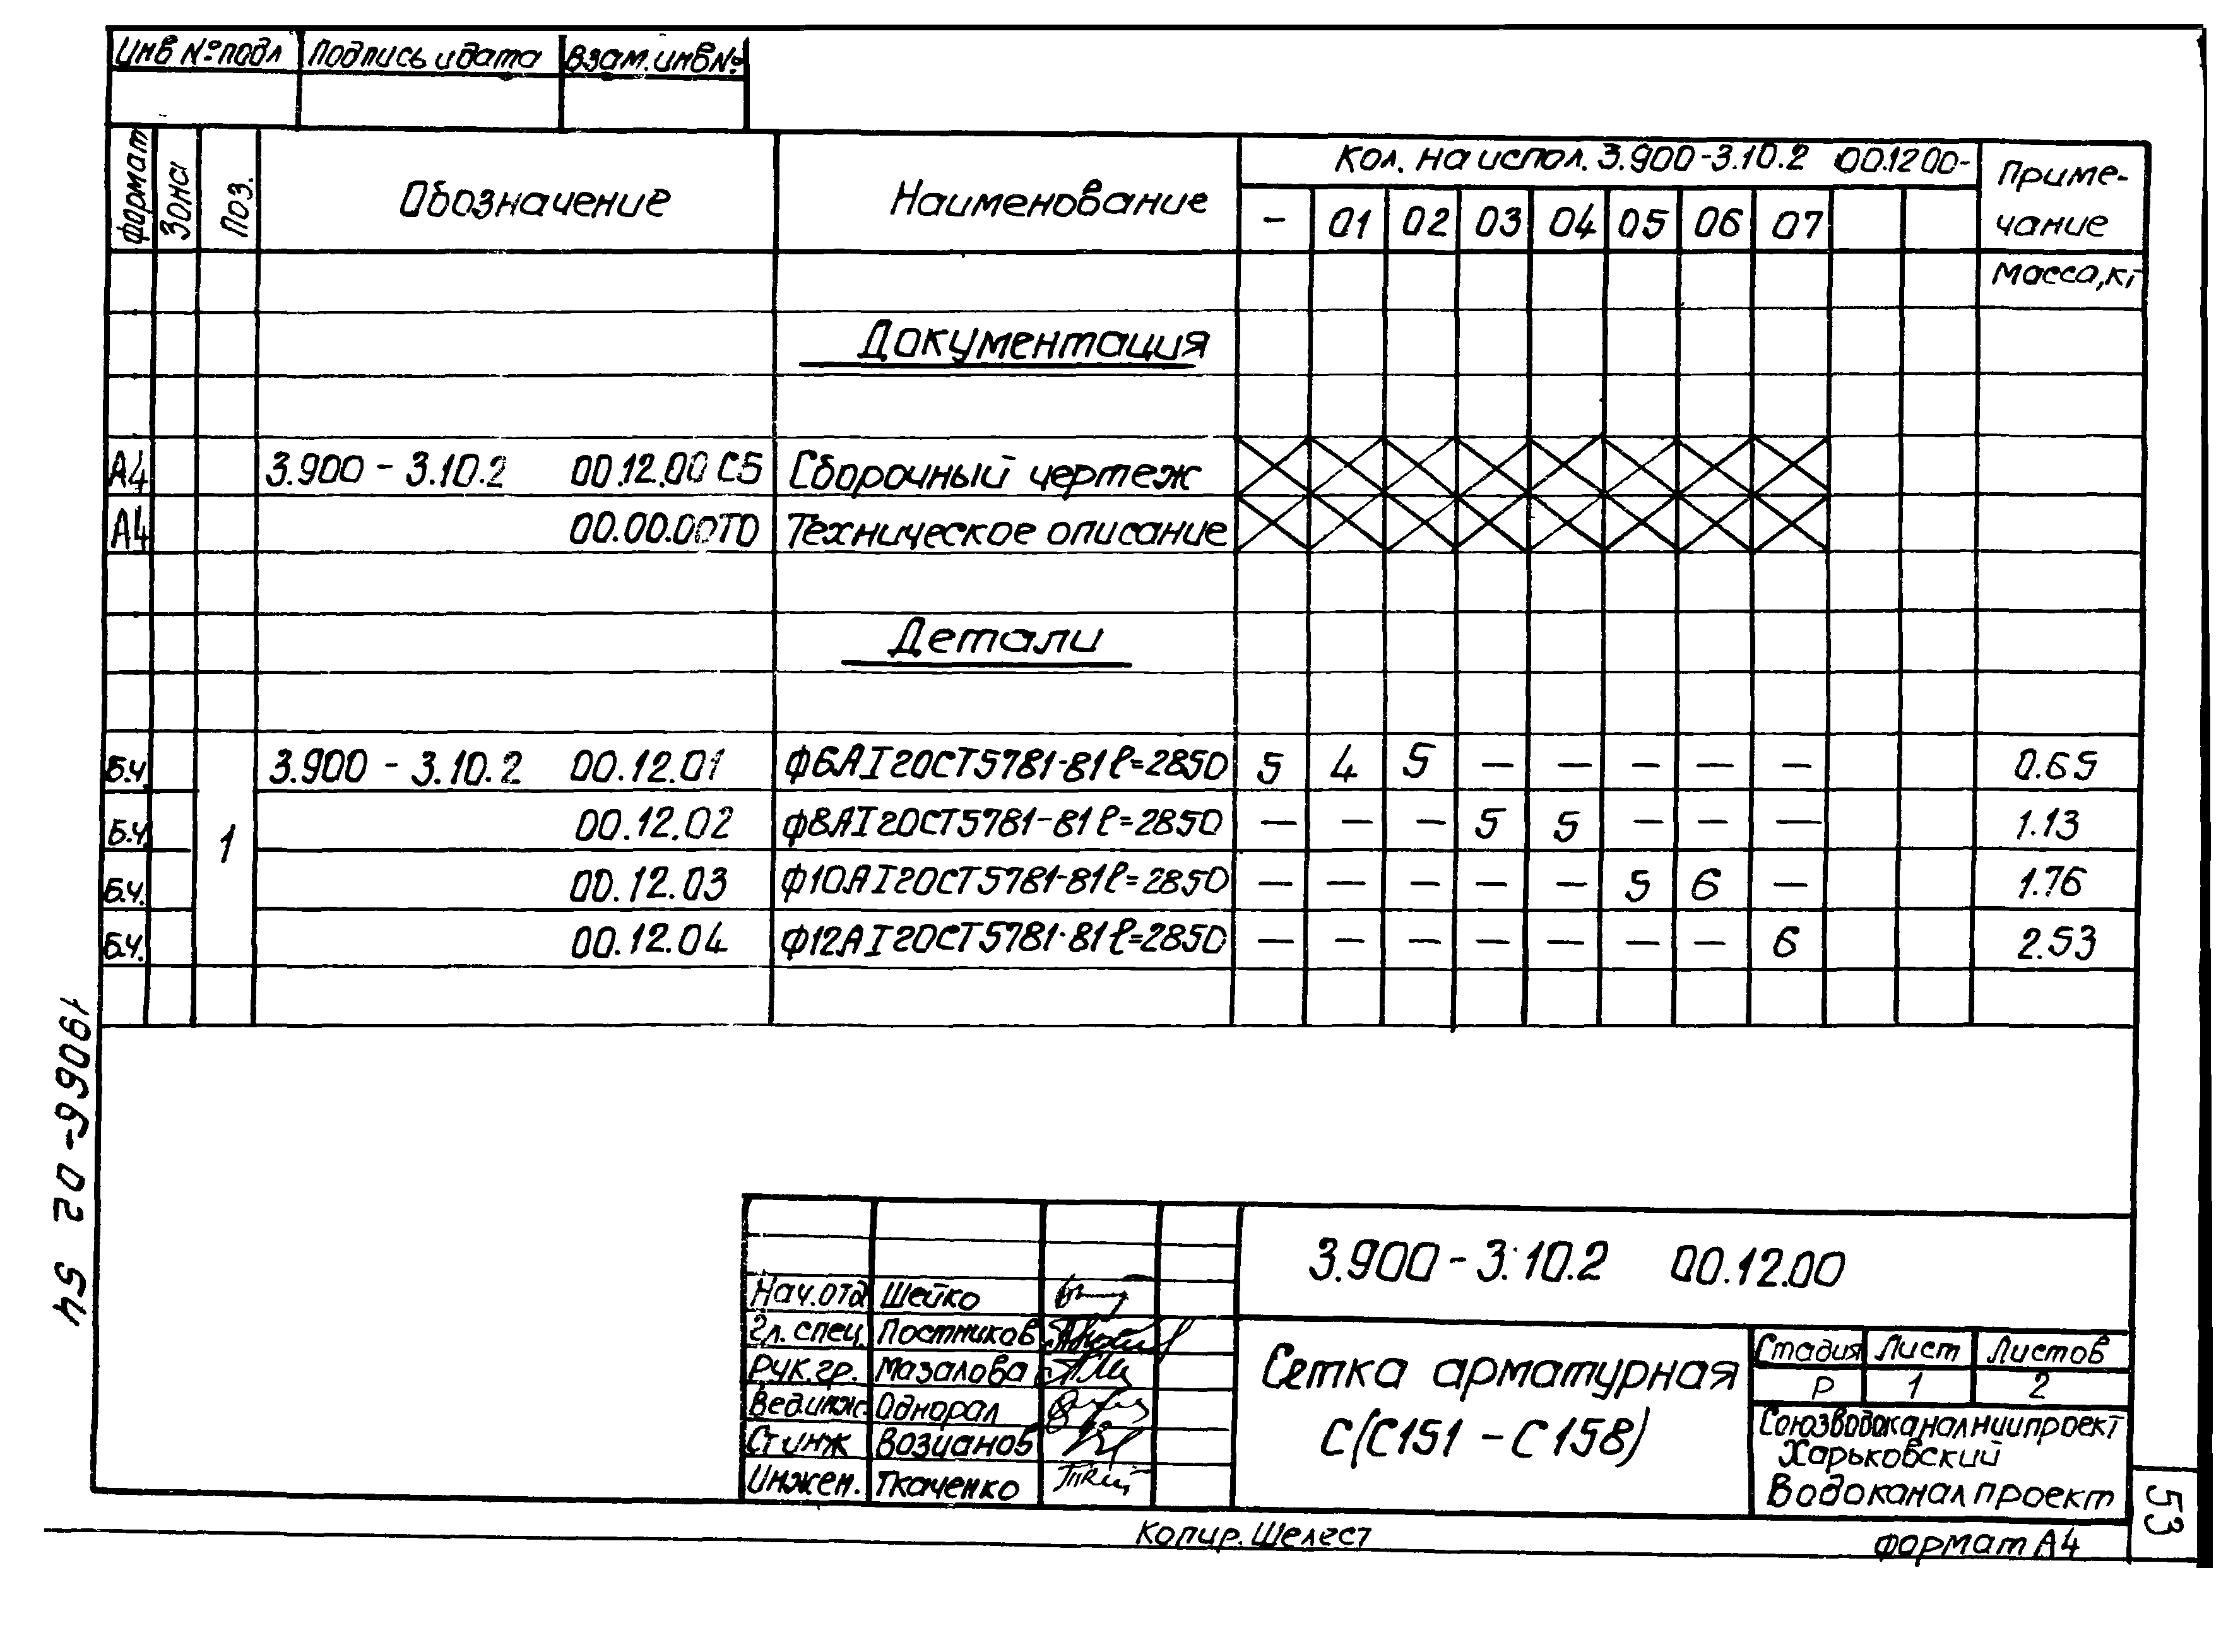 Инв № подл Подпись и дата Взам. инв №
Формат Зона Поз. Обозначение Наименование Кол. на испол. 3.900-3.10.2 00.12 00- Приме-
чание
- 01 02 03 04 05 06 07
Масса, кг
Документация
А4 3.900-3.10.2 00.12.00 СБ Сборочный чертеж
А4 00.00.00ТО Техническое описание
Детали
Б.ч 3.900-3.10.2 00.12.01 ф6АI ГОСТ5781-81 ℓ=2850 5 4 5 — — — — — 0.65
Б.ч. 1 00.12.02 ф8АI ГОСТ5781-81 ℓ=2850 — — — 5 5 — — — 1.13
Б.ч. 00.12.03 ф10АI ГОСТ5781-81 ℓ=2850 — — — — — 5 6 — 1.76
Б.ч. 00.12.04 ф12АI ГОСТ5781-81 ℓ=2850 — — — — — — — 6 2.53
19066-02 54
3.900-3.10.2 00.12.00
Нач.отд Шейко
Гл. спец. Постников
Рук.гр. Мазалова
Вед.инж. Однорал
Ст инж Возианов
Инжен. Ткаченко
Сетка арматурная
С(С151-С158)
Стадия Лист Листов
Р 1 2
Союзводоканалниипроект
Харьковский
Водоканалпроект
53
Копир. Шелест
формат А4